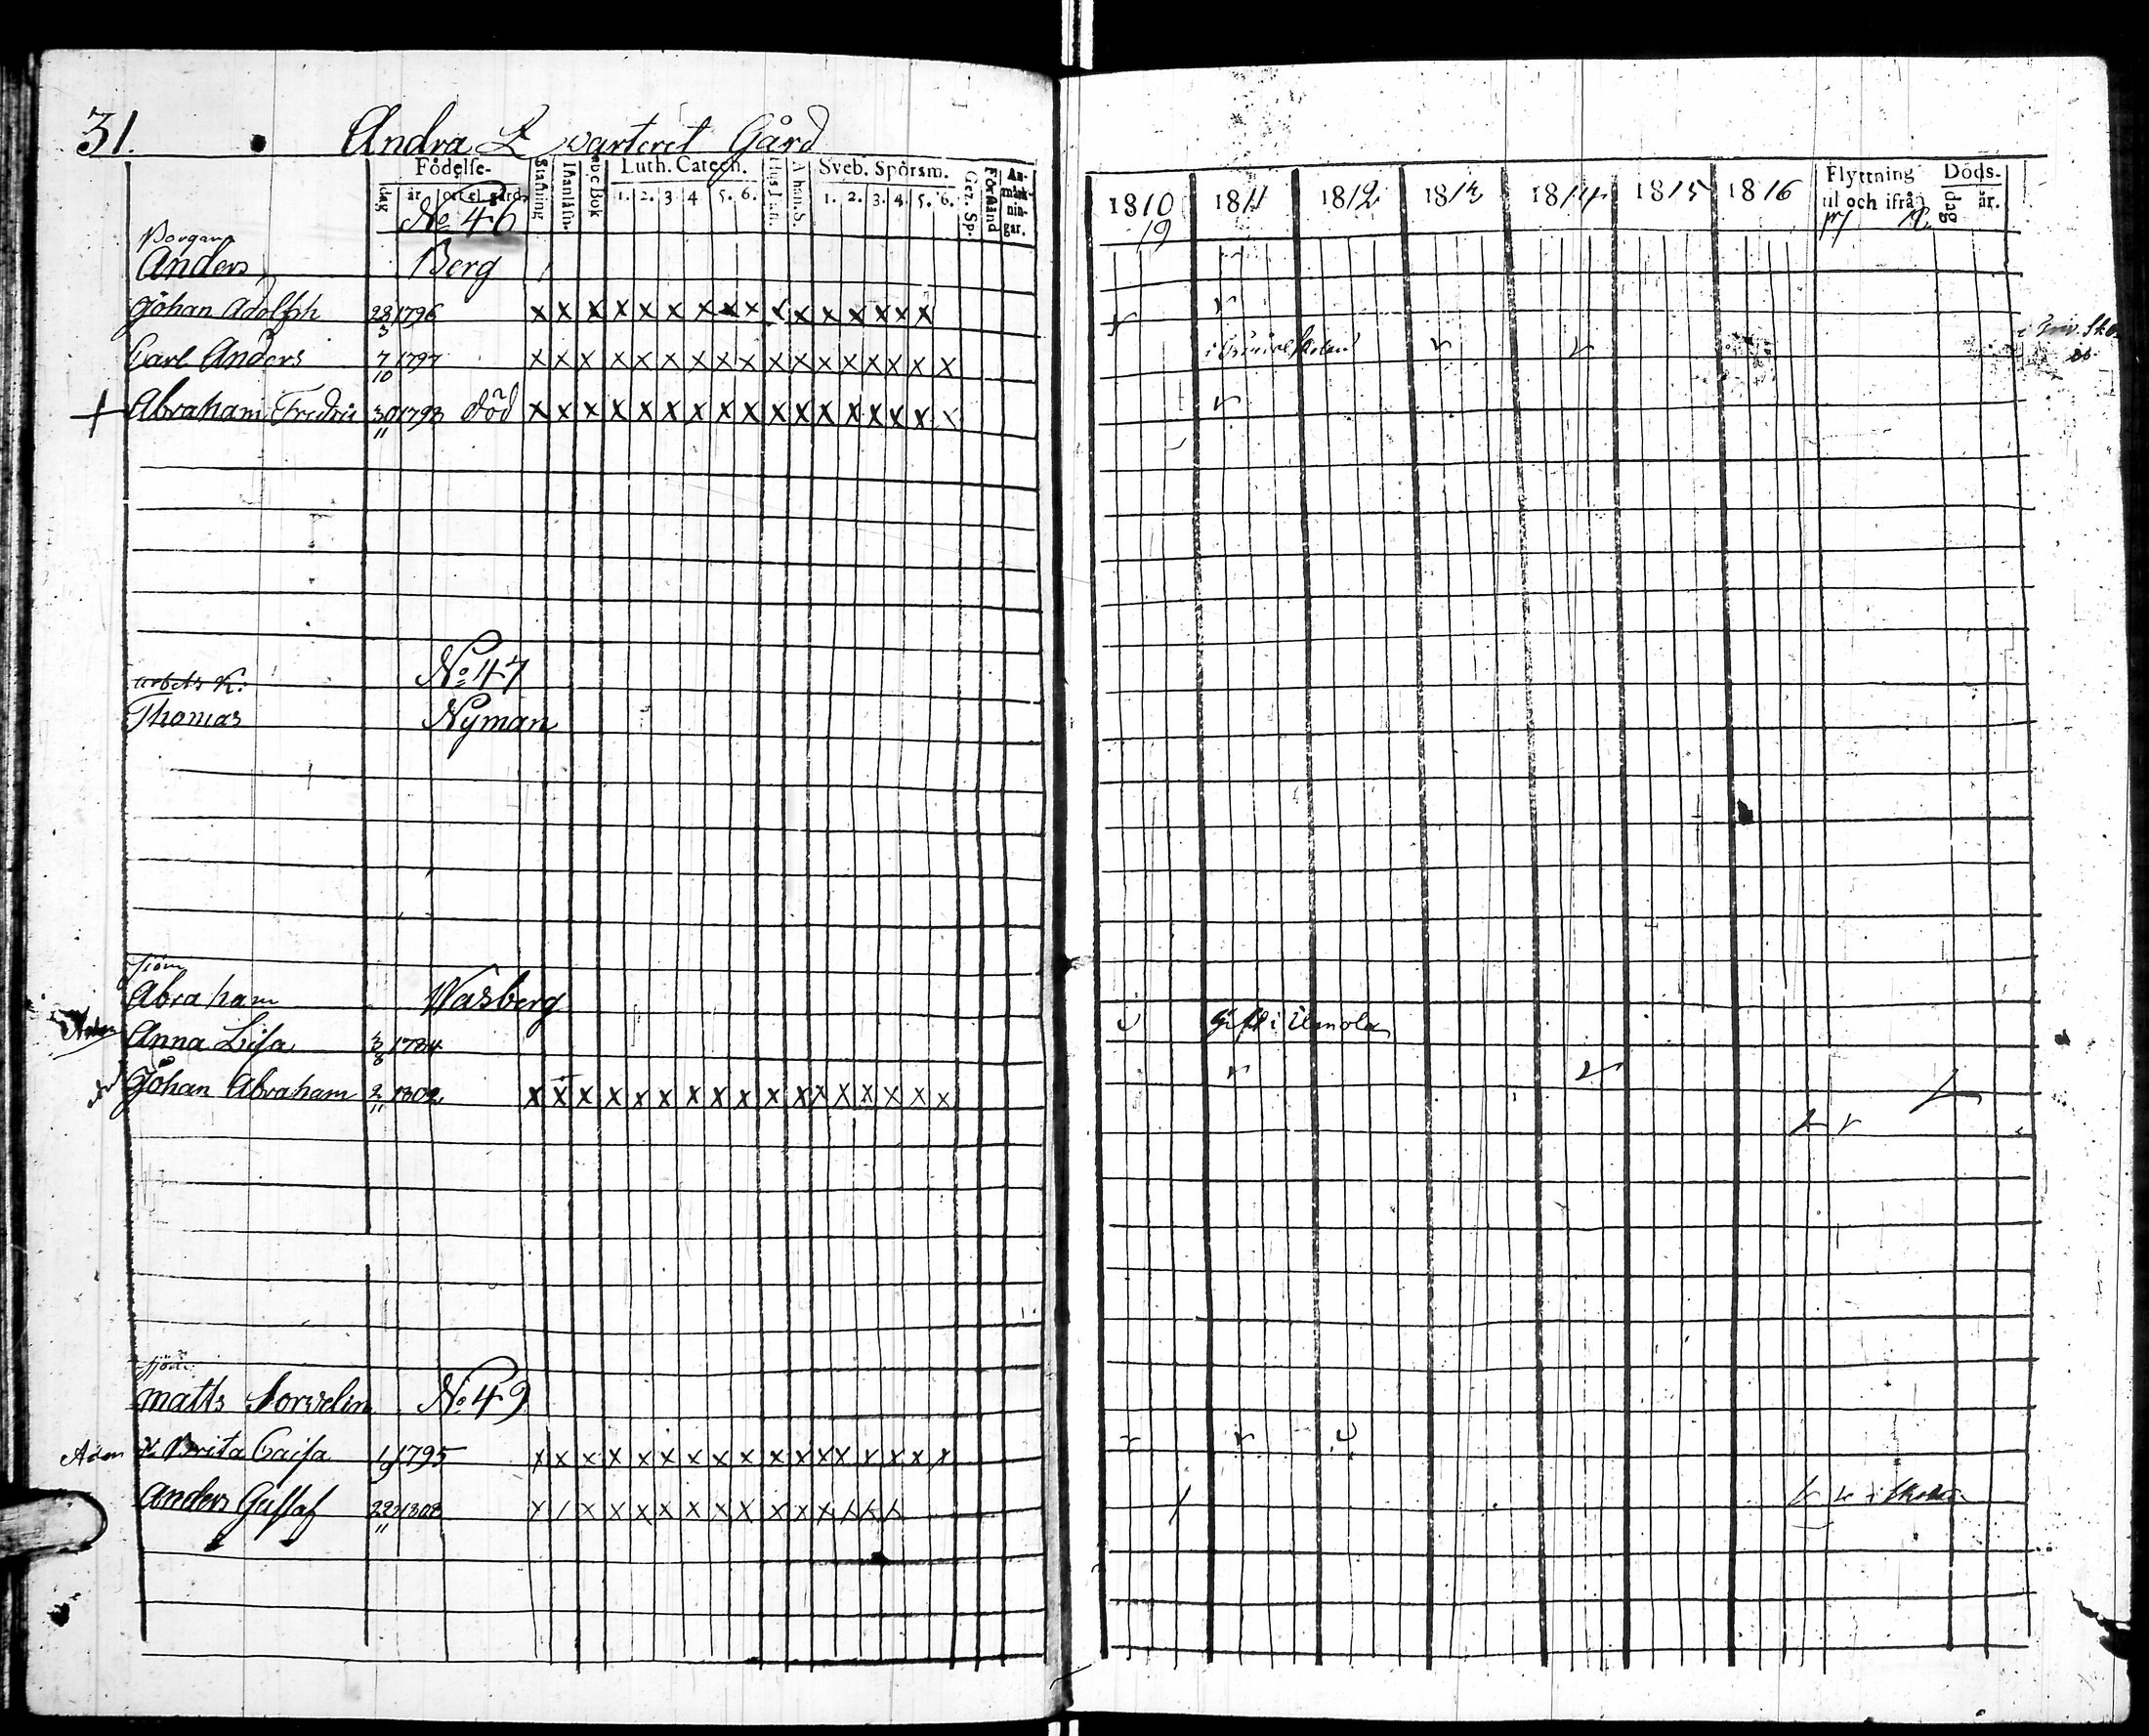 31. Andra Qvarteret Gård
Födelse- Stafning Innanläsn. abc Bok Luth. Catech. Hust. Athan. S. Sveb. Spörsm. Gez. Sp. Förstånd An-märk-nin-gar.
dag år ort el. gård. 1. 2. 3 4 5. 6. 1. 2. 3. 4. 5. 6.
No 46
Borgare
Anders Berg
Johan Adolph 28/3 1796 x x x x x x x x x x x x x x x x
Carl Anders 7/10 1797 x x x x x x x x x x x x x x x x x
+ Abraham Fredric 30/11 1793 död x x x x x x x x x x x x x x x x x
No 47
arbets K:
Thomas Nyman
sjöm
Abraham Wasberg
Anna Lisa 3/8 1784
Johan Abraham 2/11 1802 x x x x x x x x x x x x x x x x x
sjöm:
Matts Sorvelin No 49
Brita Caisa 1/9 1795 x x x x x x x x x x x x x x x x x
Anders Gustaf 22/11 1808 x / x x x x x x x x x x x x x
1810 1811 1812 1813 1814 1815 1816 Flyttning til och ifrån Döds-
dag år.
19
Gift i Ilmola